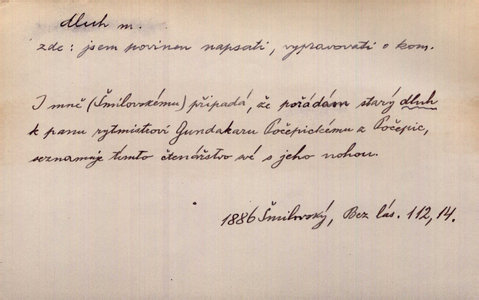 dluh m.
zde: jsem povinen napsati, vypravovati o kom.
I mně (Šmilovskému) připadá, že pořádám starý dluh
k panu rytmistrovi Gundakaru Počepickému z Počepic,
seznamuje tímto čtenářstvo své s jeho nohou.
1886 Šmilovský, Bez lás. 112, 14.